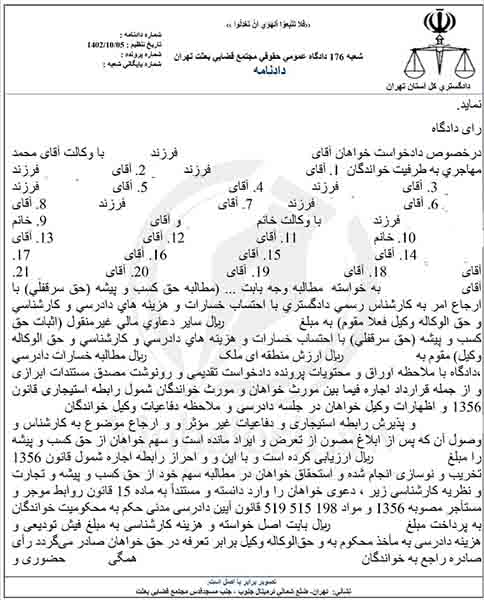 «فَلا تَتَّبِعُوا الْهَوی أَنْ تَعْدِلُوا»
شماره دادنامه :
تاریخ تنظیم : 1402/10/05
شماره پرونده :
شماره بایگانی شعبه :
شعبه 176 دادگاه عمومي حقوقي مجتمع قضايي بعثت تهران
دادنامه
دادگستري کل استان تهران
نماید.
رای دادگاه
درخصوص دادخواست خواهان آقای فرزند با وکالت آقای محمد
مهاجري به طرفیت خواندگان 1. آقای فرزند 2. آقای فرزند
3. آقای فرزند 4. آقای 5. آقای فرزند
6. آقای فرزند 7. آقای فرزند 8. آقای
فرزند با وکالت خانم و آقای 9. خانم
10. خانم 11. آقای 12. آقای 13. آقای
14. آقای 15. آقای 16. آقای 17.
آقای 18. آقای 19. آقای 20. آقای 21.
آقای به خواسته مطالبه وجه بابت ... (مطالبه حق کسب و پیشه (حق سرقفلي) با
ارجاع امر به کارشناس رسمي دادگستري با احتساب خسارات و هزینه هاي دادرسي و کارشناسي
و حق الوکاله وکیل فعلا مقوم) به مبلغ ریال سایر دعاوي مالي غیرمنقول (اثبات حق
کسب و پیشه (حق سرقفلي) با احتساب خسارات و هزینه هاي دادرسي و کارشناسي و حق الوکاله
وکیل) مقوم به ریال ارزش منطقه ای ملک ریال مطالبه خسارات دادرسي
،دادگاه با ملاحظه اوراق و محتویات پرونده دادخواست تقدیمی و رونوشت مصدق مستندات ابرازی
و از جمله قرارداد اجاره فیما بین مورث خواهان و مورث خواندگان شمول رابطه استیجاری قانون
1356 و اظهارات وکیل خواهان در جلسه دادرسی و ملاحظه دفاعیات وکیل خواندگان
و پذیرش رابطه استیجاری و دفاعیات غیر مؤثر و و ارجاع موضوع به کارشناس و
وصول آن که پس از ابلاغ مصون از تعرض و ایراد مانده است و سهم خواهان از حق کسب و پیشه
را مبلغ ریال ارزیابی کرده است و با این و و احراز رابطه اجاره شمول قانون 1356
تخریب و نوسازی انجام شده و استحقاق خواهان در مطالبه سهم خود از حق کسب و پیشه و تجارت
و نظریه کارشناسی زیر ، دعوی خواهان را وارد دانسته و مستنداً به ماده 15 قانون روابط موجر و
مستأجر مصوبه 1356 و مواد 198 515 519 قانون آیین دادرسی مدنی حکم به محکومیت خواندگان
به پرداخت مبلغ ریال بابت اصل خواسته و هزینه کارشناسی به مبلغ فیش تودیعی و
هزینه دادرسی به مأخذ محکوم به و حق‌الوکاله وکیل برابر تعرفه در حق خواهان صادر می‌گردد رأی
صادره راجع به خواندگان همگی حضوری و
تصویر برابر با اصل است.
نشانی: تهران- ضلع شمالي ترمینال جنوب ، جنب مسجدقدس مجتمع قضايي بعثت